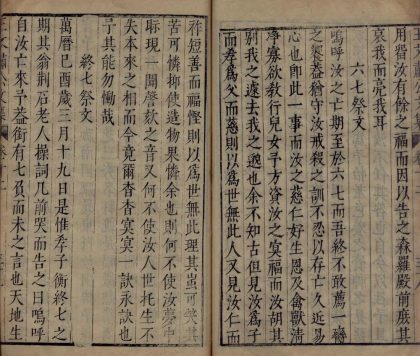 用假汝以有餘之而出告之森羅殿前庶其
哀我而亮我耳
六七祭文
嗚呼汝之亡期至於六七而吾終不敢薦一觴
之奠蓋猶守汝戒殺之訓不忍以存亡久近易
心也即此一事而汝之慈仁好生恩及禽獸清
淨寡欲教行兒女子吾方資汝之冥福而汝胡其
別我之遽去我之也余不知古但見汝爲子
而孝爲父而慈則以爲世無此人又見汝仁而
祚短善而福慳則以爲世無此理其蚩可其
苦可憐抑使造物果憐余也則何不使汝夢中
現一開謦欬之音又何不使汝入世托生不
失本來之相而今竟爾杳杳冥冥一訣永訣也
予其能勿慟哉
終七祭文
萬曆己酉歲三月十九日是惟孝子衡終七之
期其翁荆石老人操詞几前哭而告之曰嗚呼
自汝亡來予益衡有七負而未之言也天地生